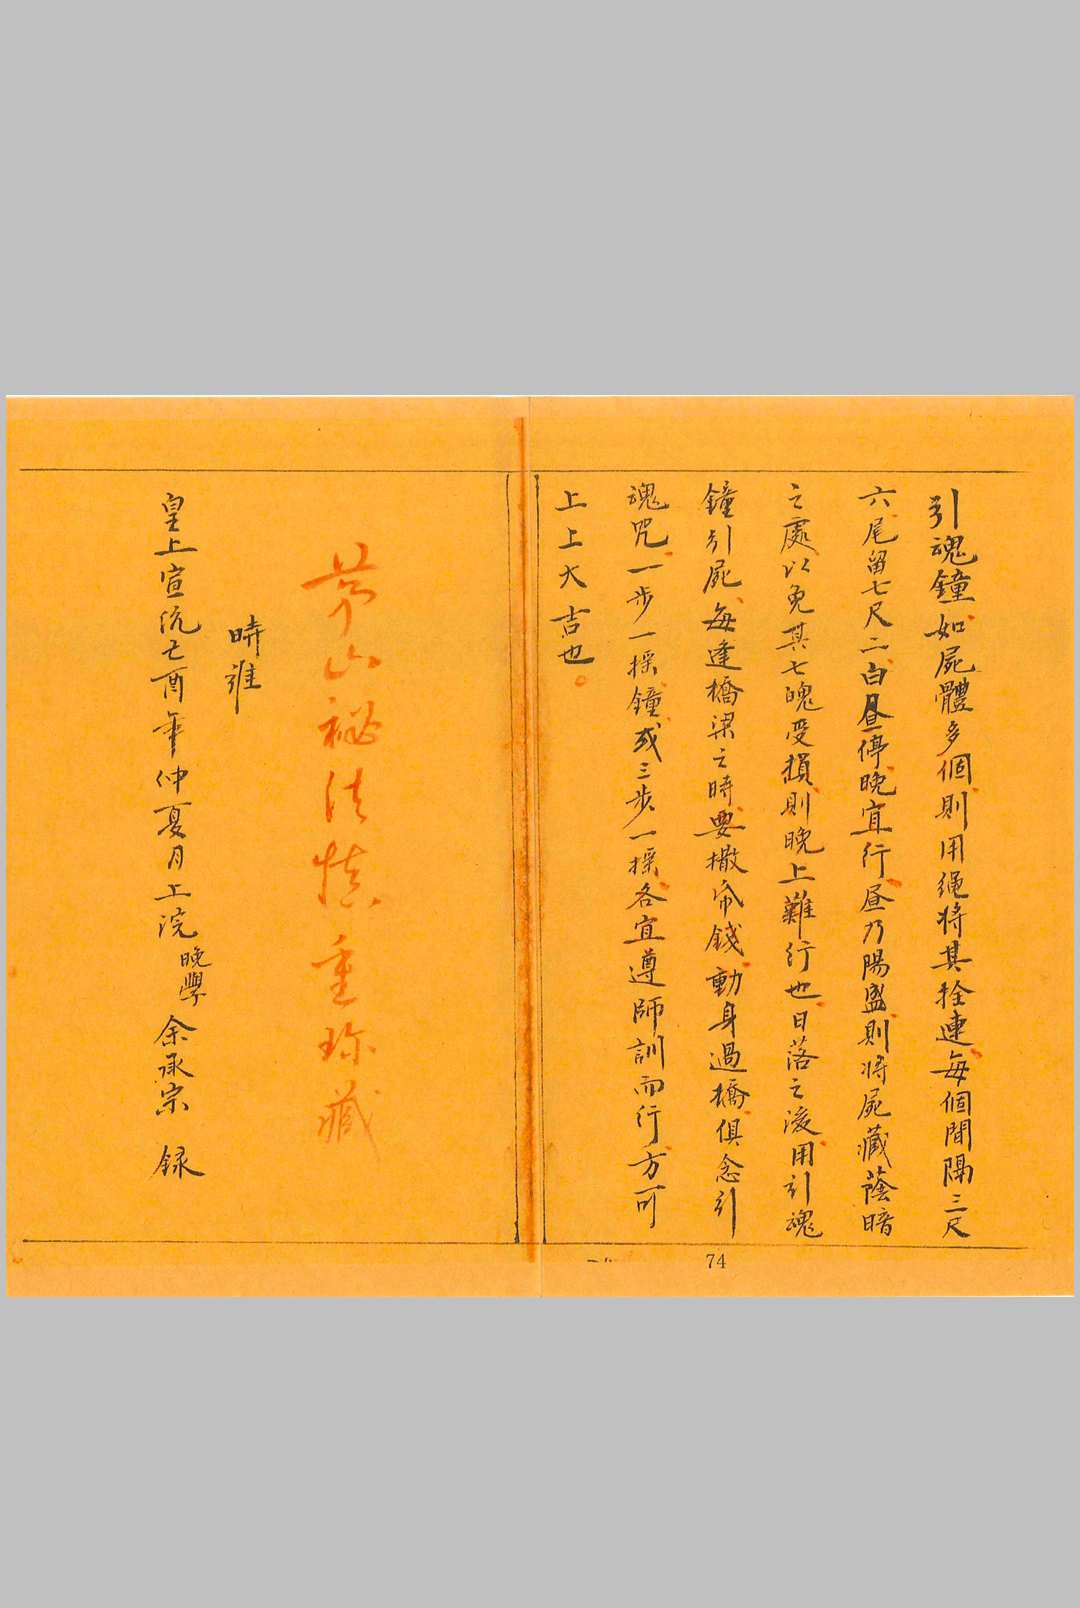 引魂鐘如屍體多個則用繩將其拴連每個間隔三尺
六尾留七尺二白晝停晚宜行昼乃陽盛則将屍藏蔭暗
之處以免其七魄受損則晚上難行也日落之後用引魂
鐘引屍每逢橋梁之時要撒帋錢動身過橋俱念引
魂咒一步一搖鐘或三步一搖各宜遵師訓而行方可
上上大吉也。
74
茅山秘法慎重珍藏
時維
皇上宣統乙酉年仲夏月上浣晚學余承宗 録